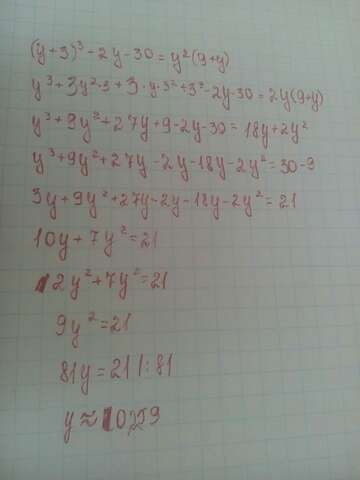 (y+3)³-2y-30=y²(9+y)
y³+3y²·3+3·y·3²+3³-2y-30=2y(9+y)
y³+9y²+27y+9-2y-30=18y+2y²
y³+9y²+27y-2y-18y-2y²=30-9
3y+9y²+27y-2y-18y-2y²=21
10y+7y²=21
2y²+7y²=21
9y²=21
81y=21|:81
y≈